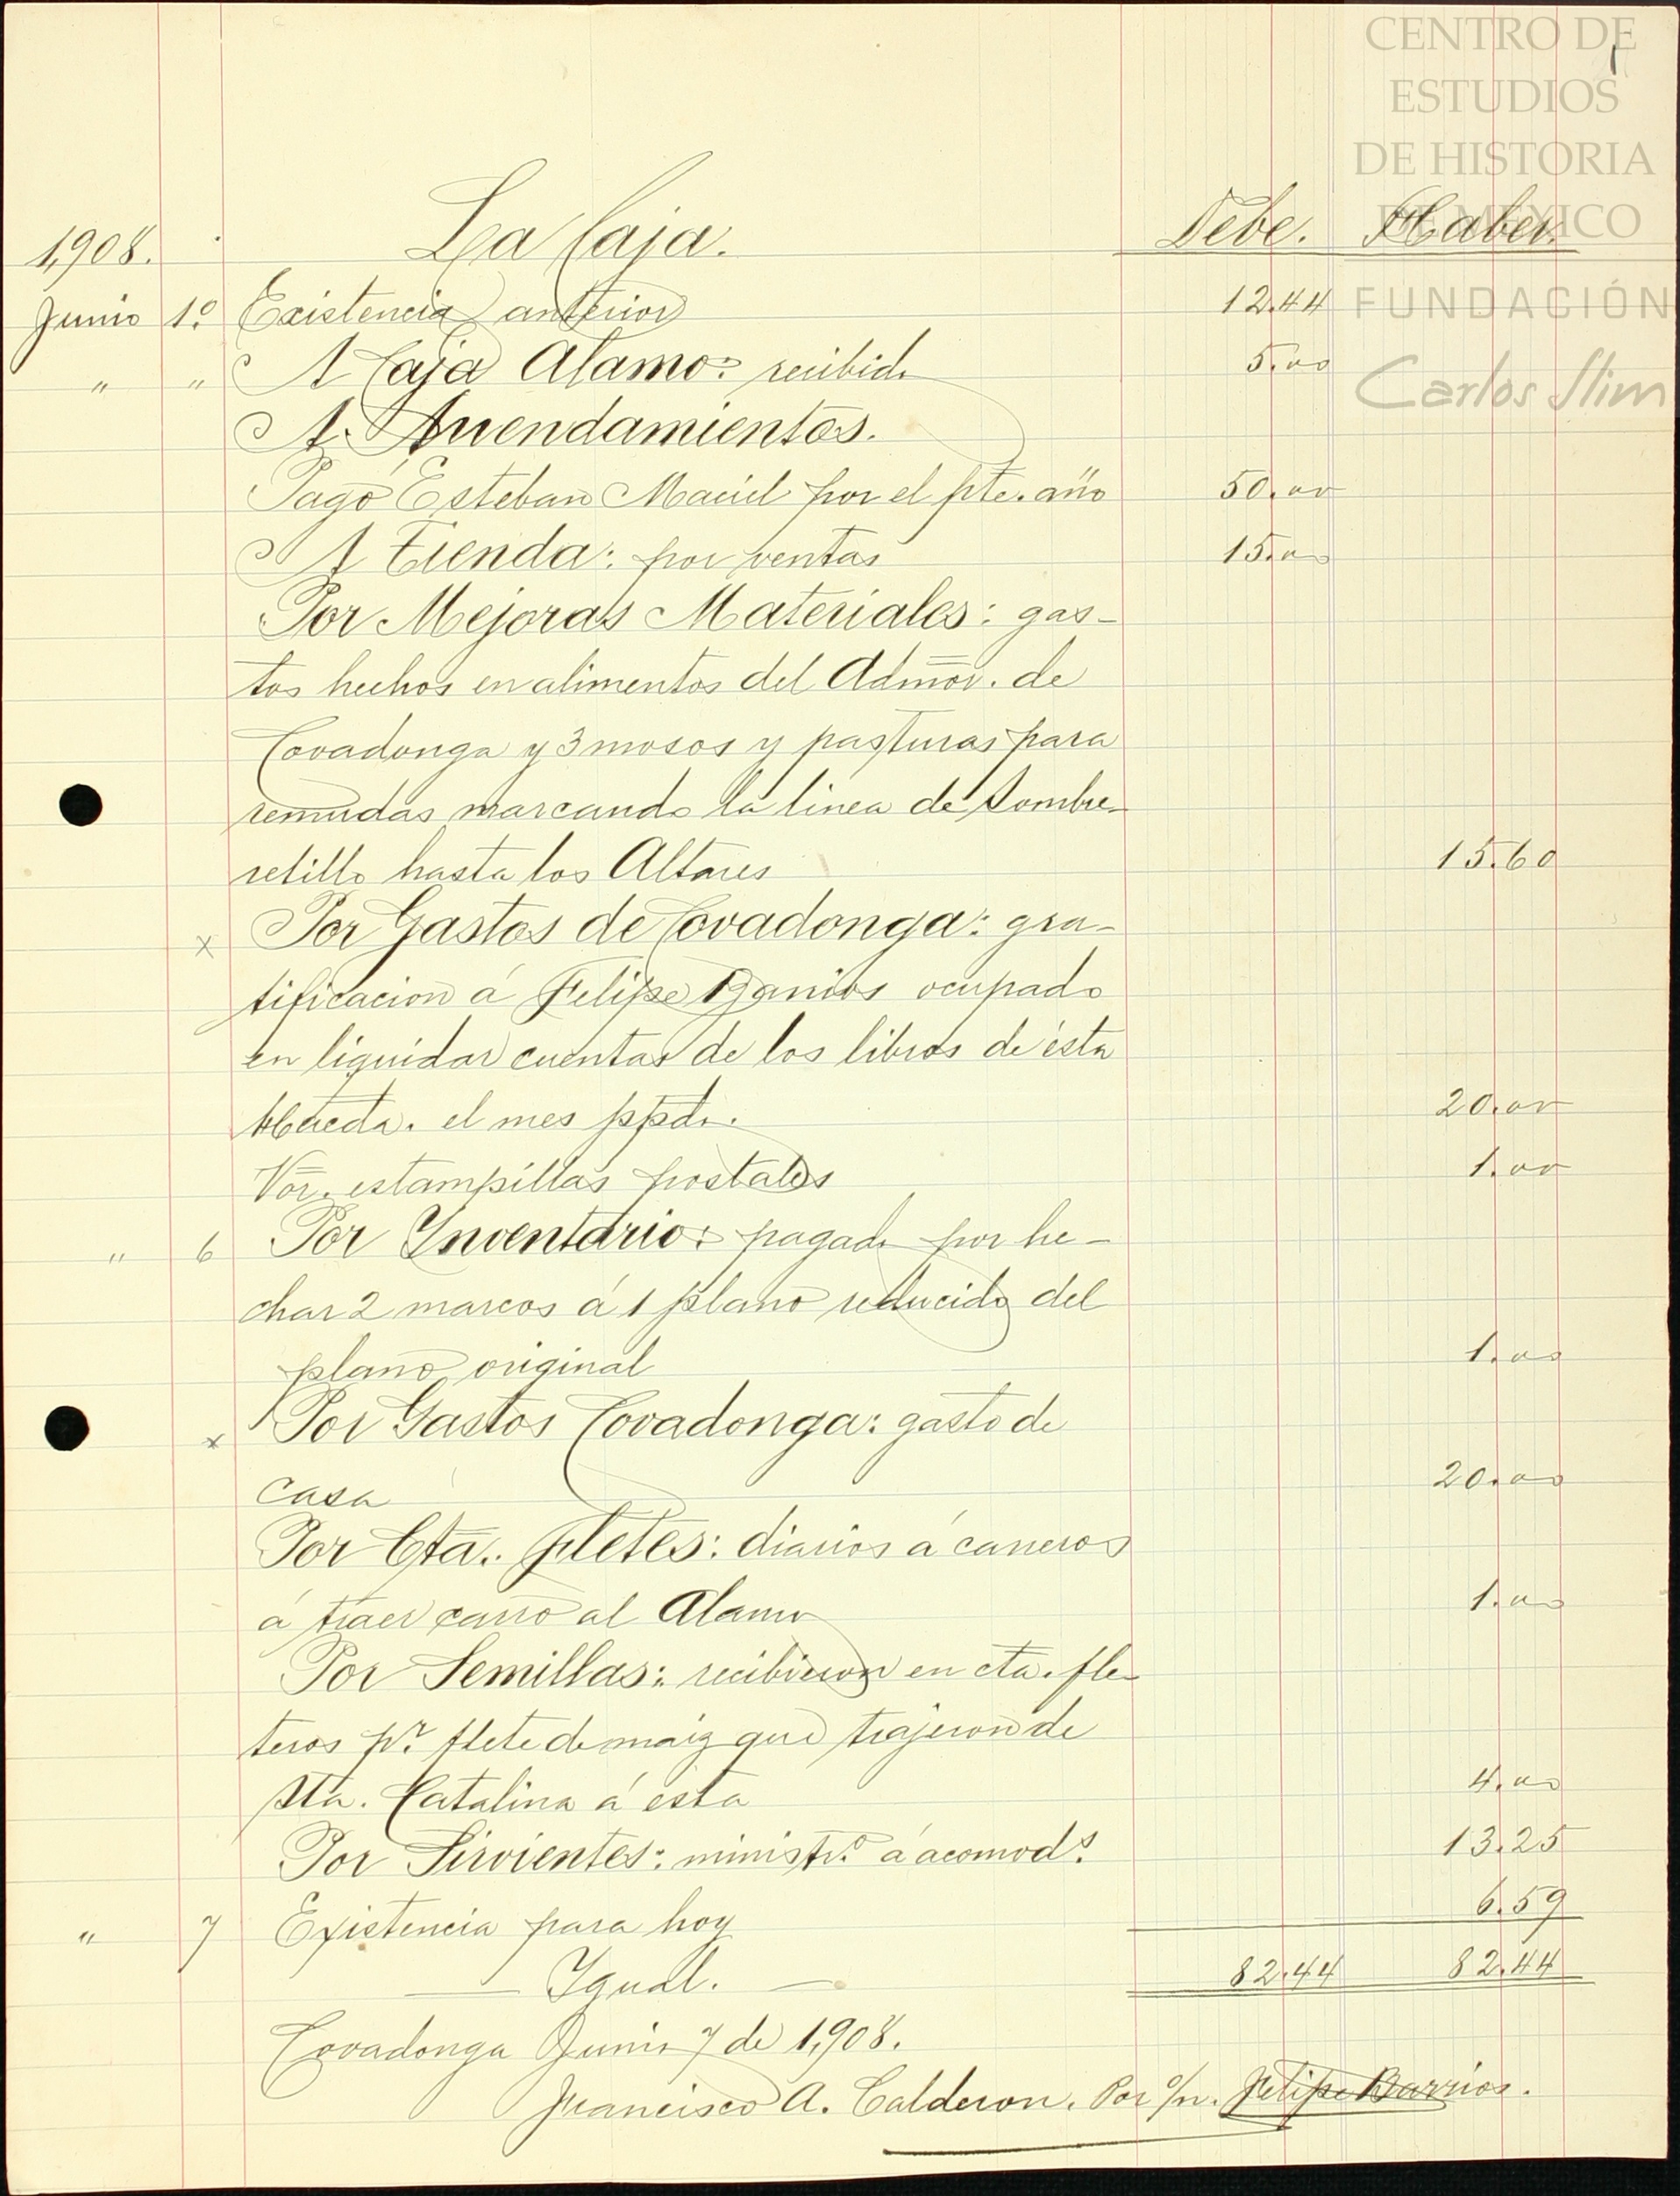 CENTRO DE
ESTUDIOS
DE HISTORIA
DE MEXICO
FUNDACIÓN
Carlos Slim
1
1,908. La Caja. Debe. Haber.
Junio 1º Existencia anterior 12.44
" " A Caja Alamo: recibido 5.00
A Arrendamientos.
Pagó Esteban Maciel por el pte. año 50.00
A Tienda: por ventas 15.00
Por Mejoras Materiales: gas-
tos hechos en alimentos del Admor. de
Covadonga y 3 mosos y pasturas para
remudas marcando la linea de Sombre-
retillo hasta los Altares 15.60
x Por Gastos de Covadonga: gra-
tificacion á Felipe Barrios ocupado
en liquidar cuentas de los libros de ésta
Hacda. el mes ppdo. 20.00
Vor. estampillas postales 1.00
" 6 Por Inventario: pagado por he-
char 2 marcos á 1 plano reducido del
plano original 1.00
x Por Gastos Covadonga: gasto de
casa 20.00
Por Cta. Fletes: diarios á carreros
á traer carro al Alamo 1.00
Por Semillas: recibieron en cta. fle-
teros pr. flete de maiz que trajeron de
Sta. Catalina á esta 4.00
Por Sirvientes: ministro. á acomods. 13.25
" 7 Existencia para hoy 6.59
Igual. 82.44 82.44
Covadonga Junio 7 de 1,908.
Francisco A. Calderon. Por o/n. Felipe Barrios.